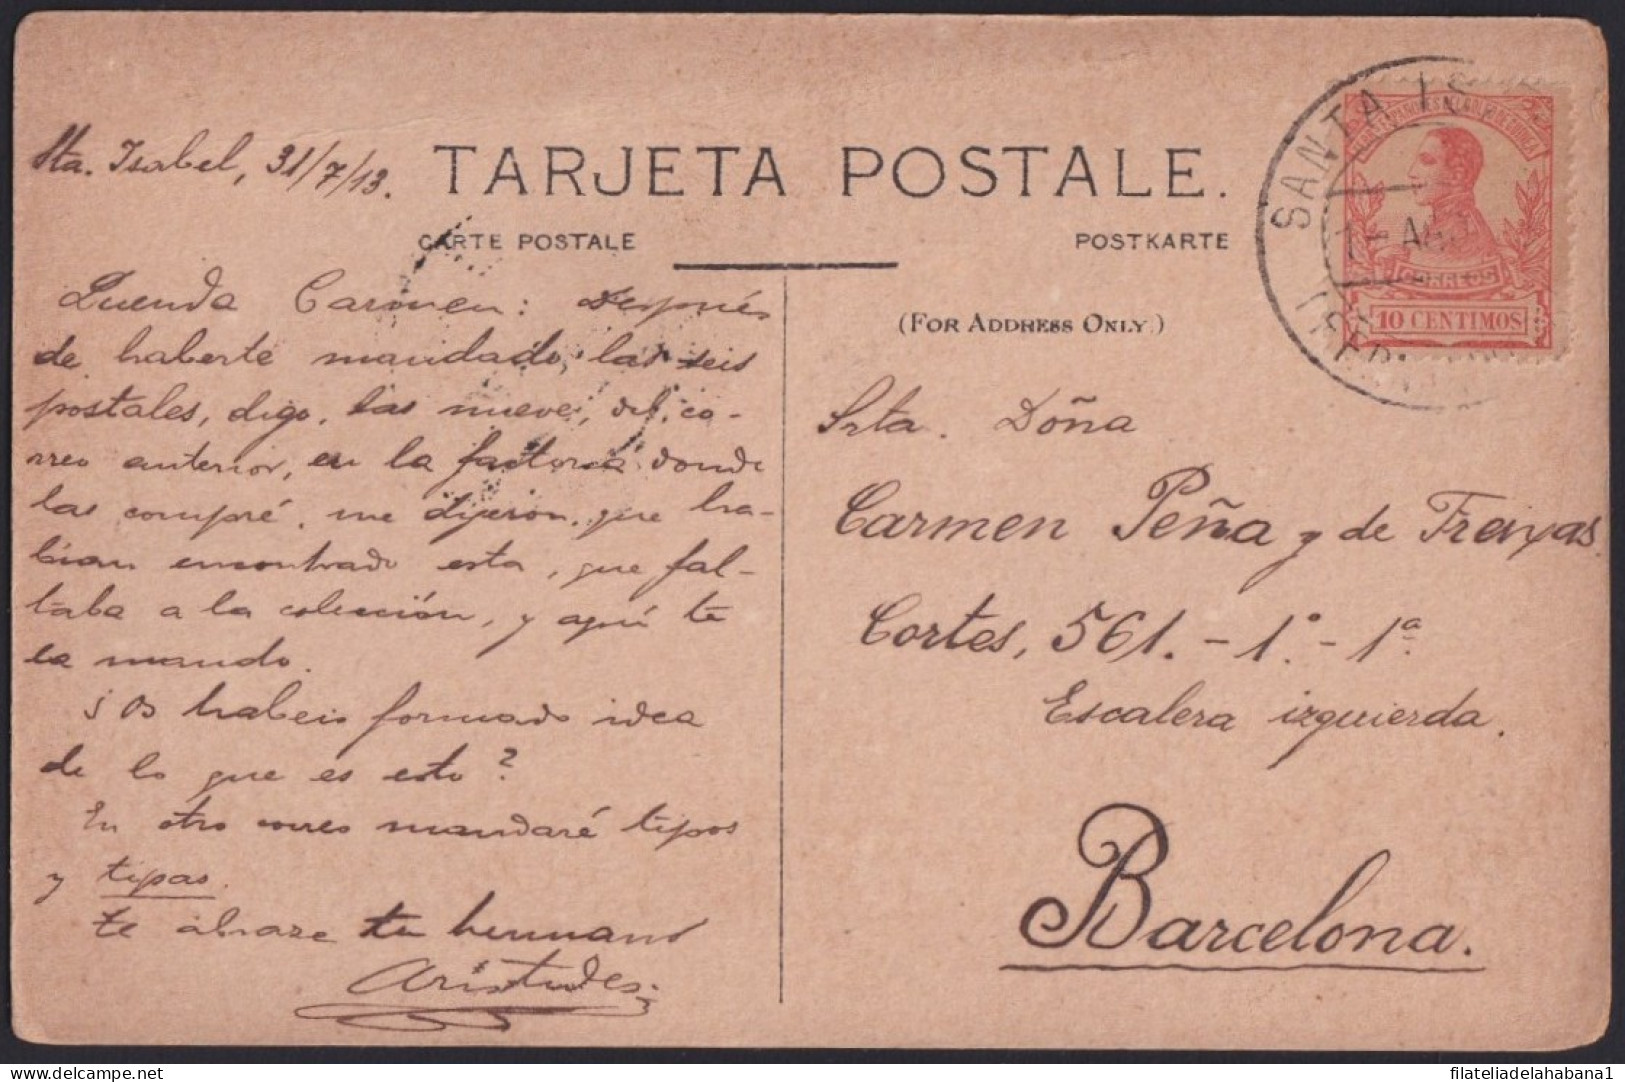 Sta. Isabel, 31/7/13.
TARJETA POSTALE.
CARTE POSTALE
POSTKARTE
Querida Carmen: Después
de haberte mandado, las seis
postales, digo, las nueve, del co-
rreo anterior, en la factoria donde
las compré, me dijeron, que ha-
bian encontrado esta, que fal-
taba a la colección, y aqui te
la mando.
¿Os habeis formado idea
de lo que es esto?
En otro correo mandaré tipos
y tipas.
te abraza tu hermano
Aristides
(FOR ADDRESS ONLY.)
Srta. Doña
Carmen Peña y de Freixas.
Cortes, 561.-1º.-1ª
Escalera izquierda.
Barcelona.
SANTA IS
1- AGO
CORREOS
10 CENTIMOS
filateliadelahabana1